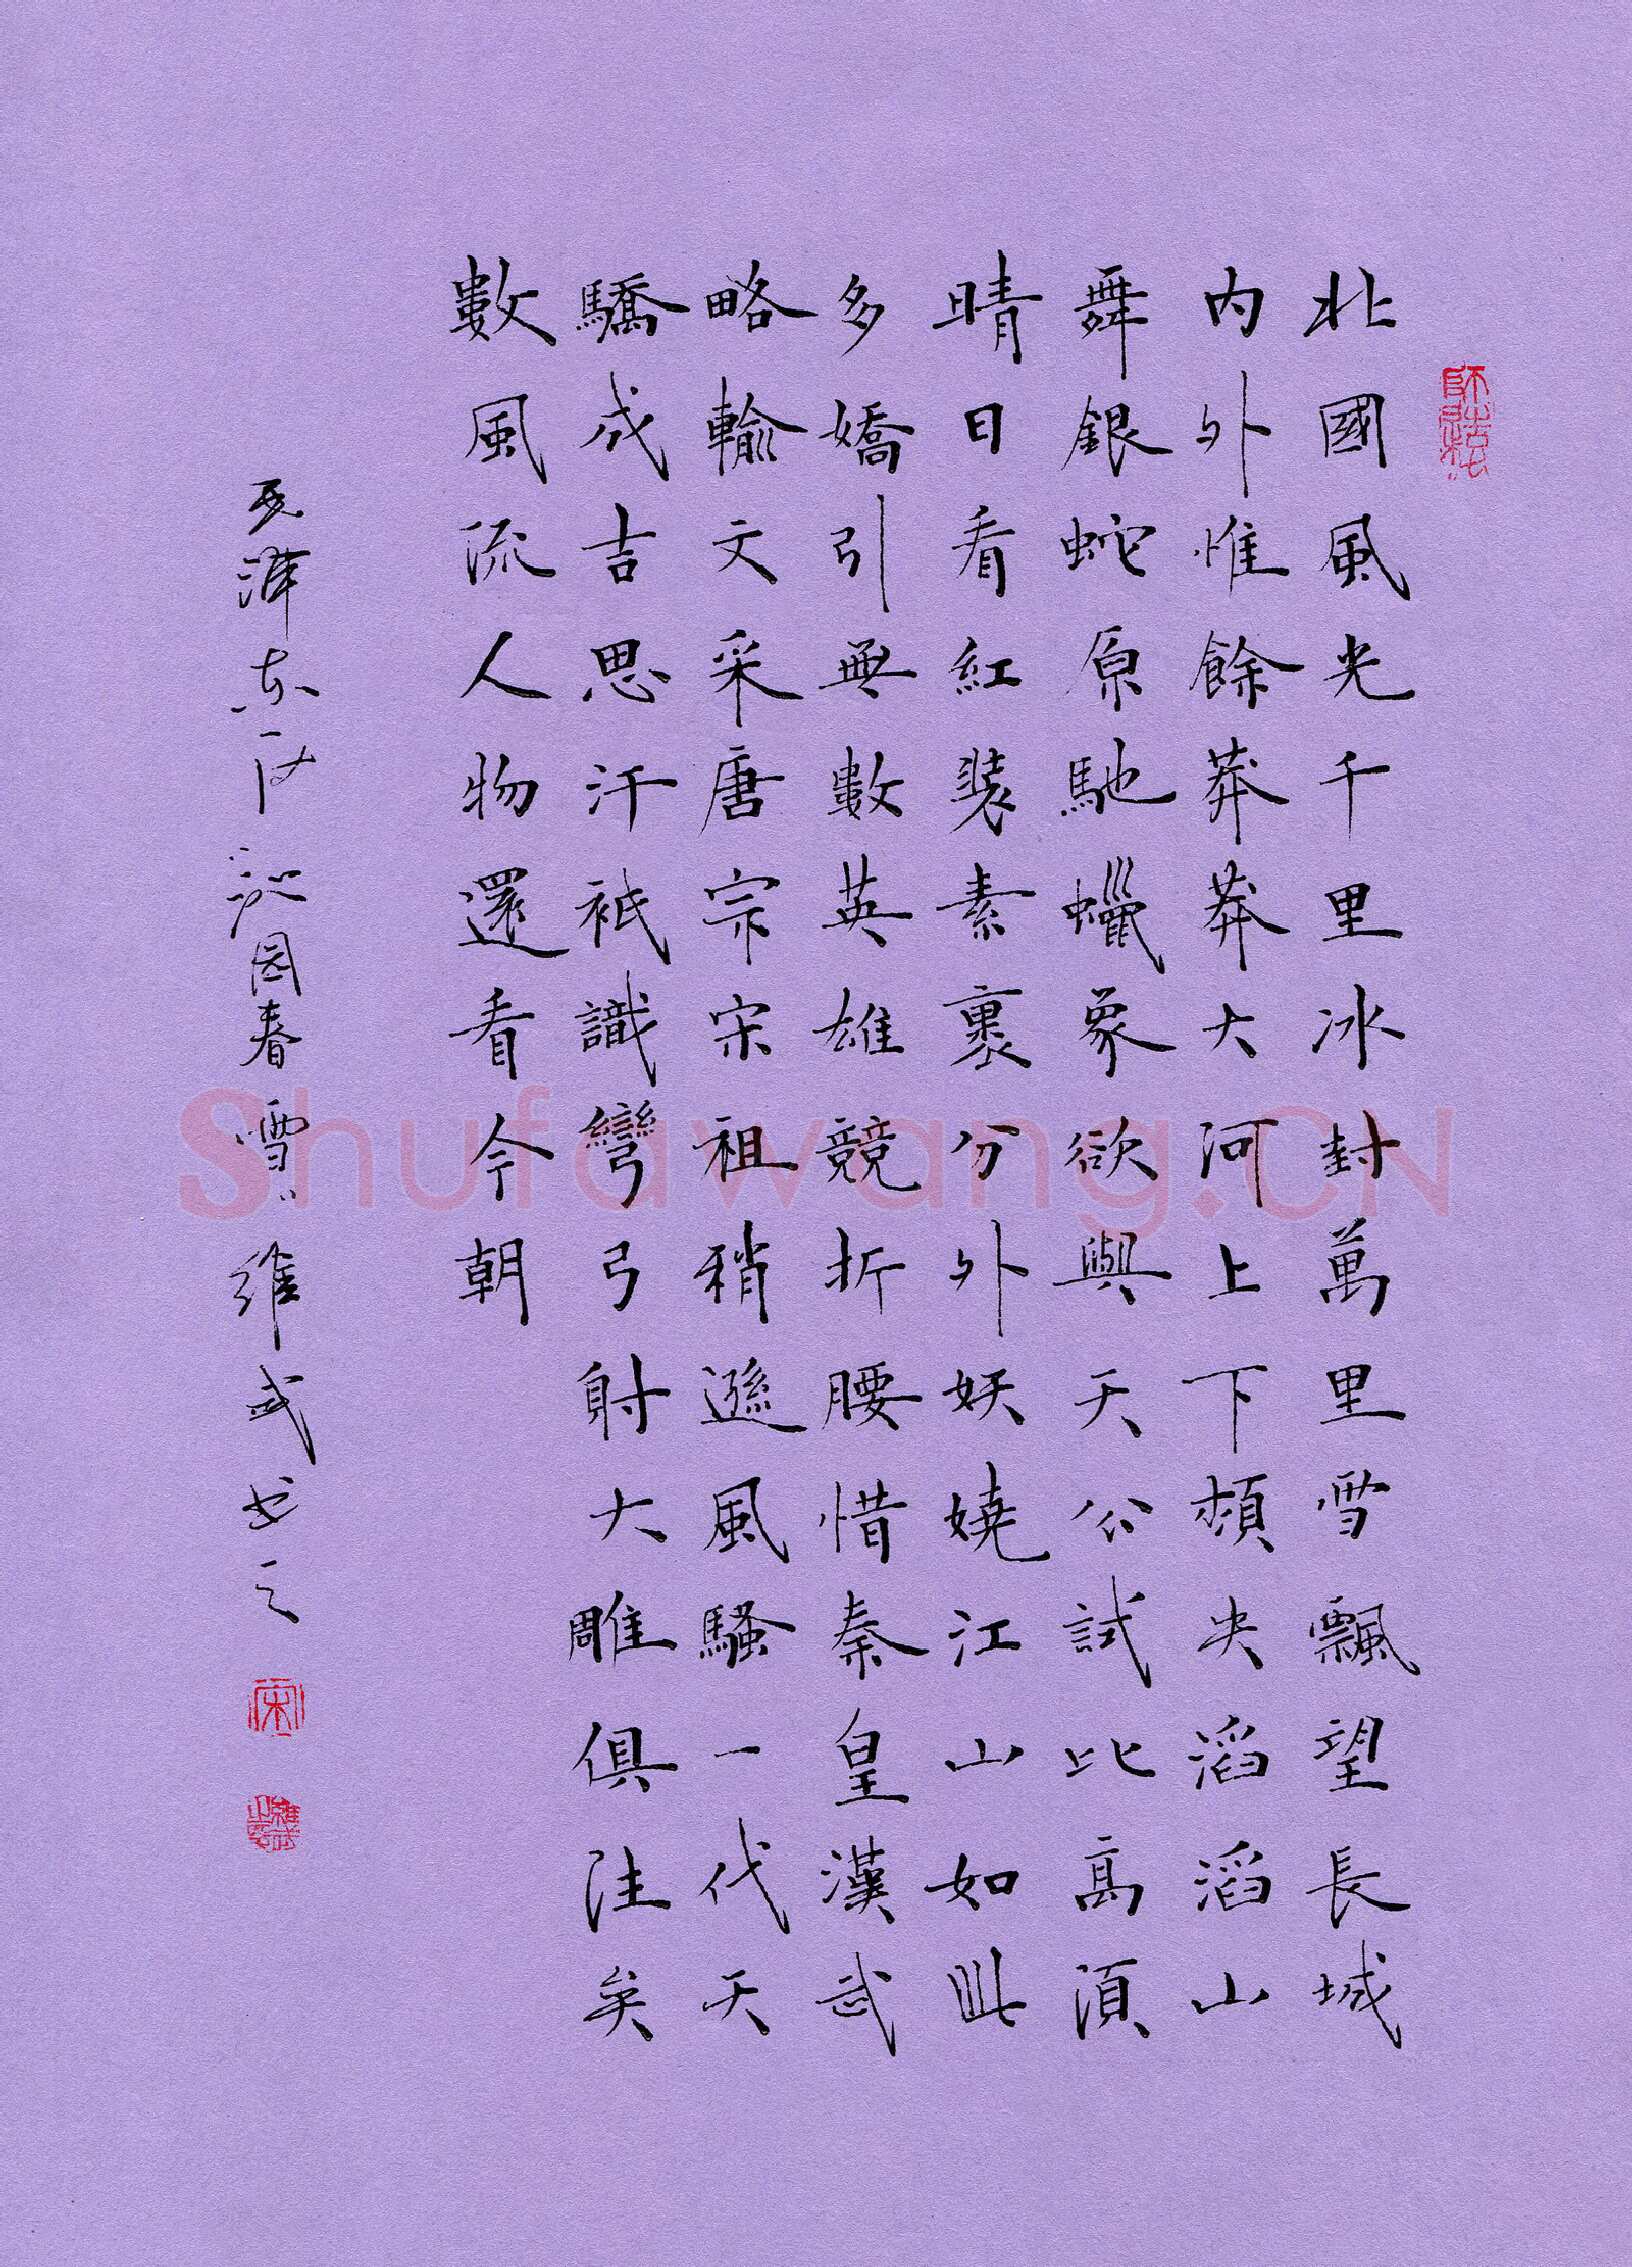 北國風光千里冰封萬里雪飄望長城
內外惟餘莽莽大河上下頓失滔滔山
舞銀蛇原馳蠟象欲與天公試比高須
晴日看紅裝素裹分外妖嬈江山如此
多嬌引無數英雄競折腰惜秦皇漢武
略輸文采唐宗宋祖稍遜風騷一代天
驕成吉思汗祇識彎弓射大雕俱往矣
數風流人物還看今朝
毛澤东词沁园春雪維武书之
宋
Shufawang.CN